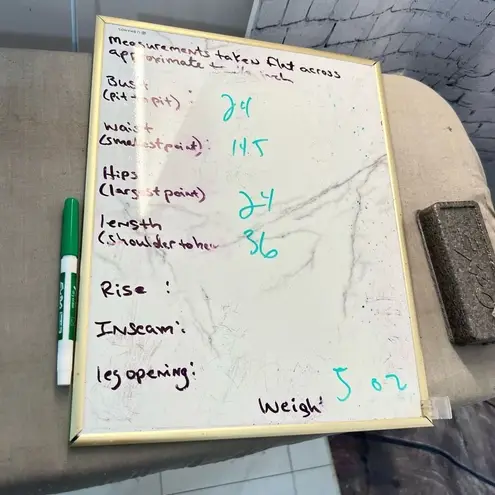 measurements taken flat across
approximate
Bust
(pit to pit): 24
waist
(smallest point): 14.5
Hips
(largest point) 24
length
(shoulder to hem 36
Rise :
Inseam:
leg opening:
Weigh: 5 oz
EXPO